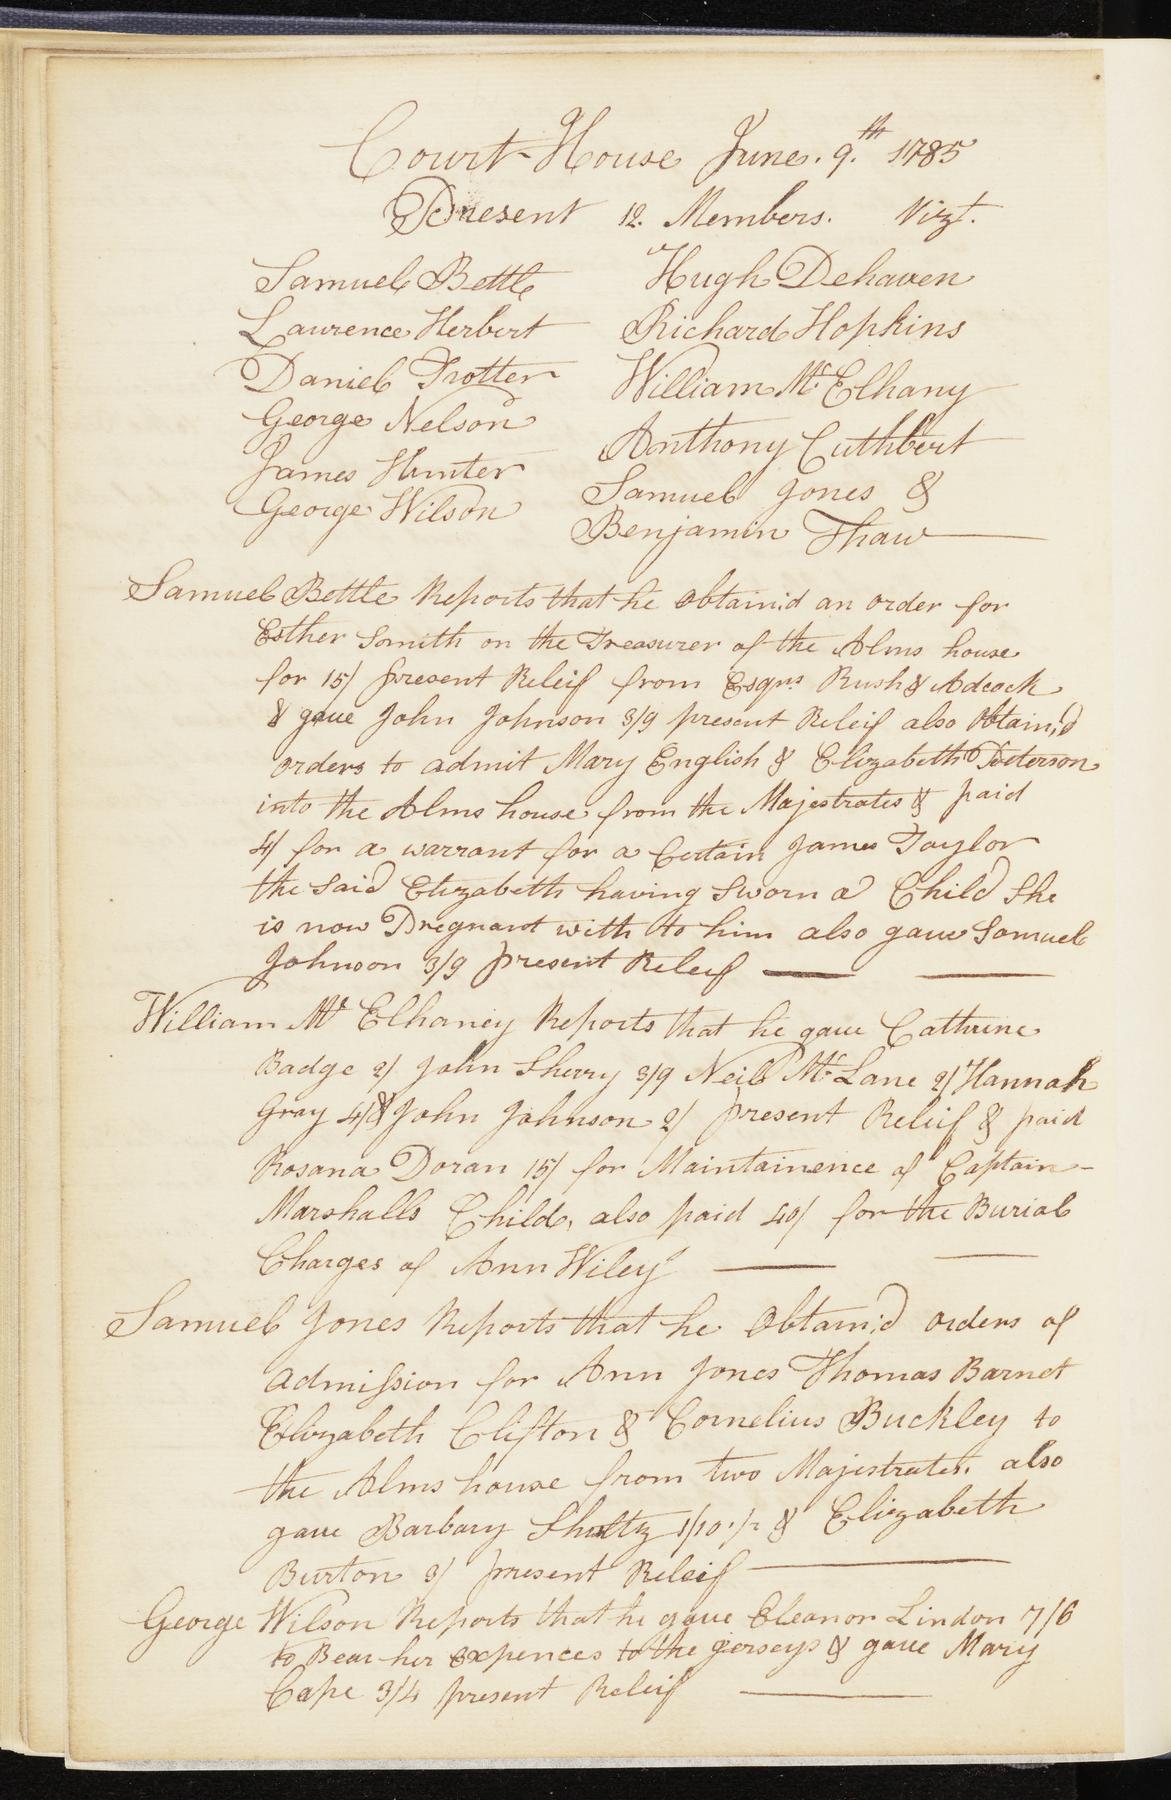 Court House June. 9.th 1785
Present 12. Members. Vizt.
Samuel Bettle Hugh Dehaven
Laurence Herbert Richard Hopkins
Daniel Trotter William Mc Elhany
George Nelson Anthony Cuthbert
James Hunter Samuel Jones &
George Wilson Benjamin Thaw
Samuel Bettle Reports that he obtain'd an order for
Esther Smith on the Treasurer of the Alms house
for 15/ present Releif from Esqrs Rush & Adcock
& gave John Johnson 3/9 present Releif also Obtain'd
orders to admit Mary English & Elizabeth Peterson
into the Alms house from the Majestrates & paid
4/ for a warrant for a Certain James Taylor
the Said Elizabeth having Sworn a Child She
is now Pregnant with to him also gave Samuel
Johnson 3/9 present Releif
William Mc Elhaney Reports that he gave Cathrine
Badge 2/ John Sherry 3/9 Neil Mc Lane 2/ Hannah
Gray 4/ & John Johnson 2/ present Releif & paid
Rosana Doran 15/ for Maintainence of Captain
Marshalls Child, also paid 40/ for the Burial
Charges of Ann Wiley
Samuel Jones Reports that he Obtain'd orders of
admission for Ann Jones Thomas Barnet
Elizabeth Clifton & Cornelius Buckley to
the Alms house from two Majestrates. also
gave Barbary Shultz 1/10 1/2 & Elizabeth
Burton 3/ present Releif
George Wilson Reports that he gave Eleanor Lindon 7/6
to Bear her expences to the Jerseys & gave Mary
Cape 3/4 present Releif